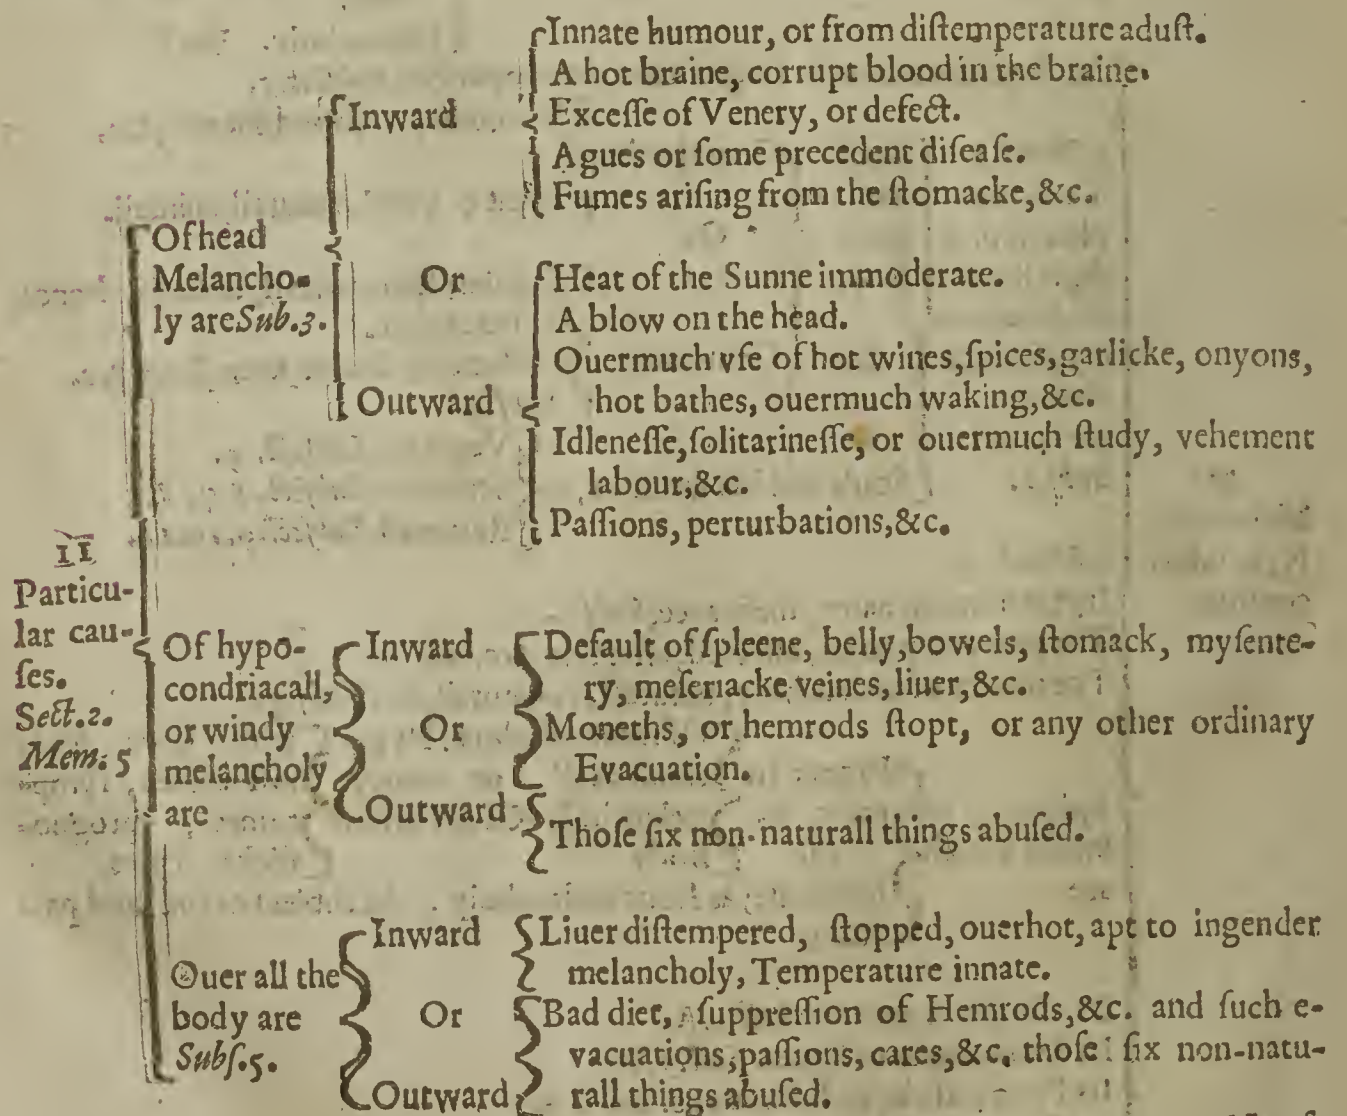 Innate humour, or from diſtemperature aduſt.
A hot braine, corrupt blood in the braine.
Inward
Exceſſe of Venery, or defect.
Agues or ſome precedent diſeaſe.
Fumes ariſing from the ſtomacke, &c.
Of head
Melancho-
ly are Sub.3.
Or
Heat of the Sunne immoderate.
A blow on the head.
Ouermuch vſe of hot wines, ſpices, garlicke, onyons,
hot bathes, ouermuch waking, &c.
Outward
Idleneſſe, ſolitarineſſe, or ouermuch ſtudy, vehement
labour, &c.
Paſſions, perturbations, &c.
II
Particu-
lar cau-
ſes.
Sect.2.
Mem. 5
Of hypo-
condriacall,
or windy
melancholy
are
Inward
Or
Outward
Default of ſpleene, belly, bowels, ſtomack, myſente-
ry, meſeriacke veines, liuer, &c.
Moneths, or hemrods ſtopt, or any other ordinary
Evacuation.
Thoſe ſix non-naturall things abuſed.
Ouer all the
body are
Subſ.5.
Inward
Or
Outward
Liuer diſtempered, ſtopped, ouerhot, apt to ingender
melancholy, Temperature innate.
Bad diet, ſuppreſſion of Hemrods, &c. and ſuch e-
vacuations, paſſions, cares, &c. thoſe ſix non-natu-
rall things abuſed.